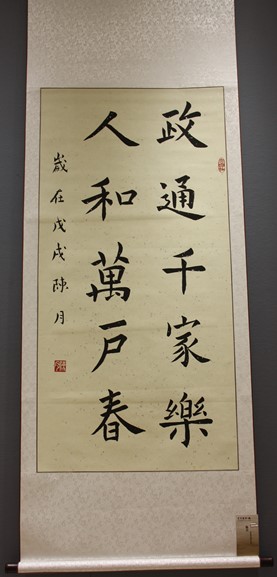 政通千家樂
人和萬戸春
歲在戊戌陳月